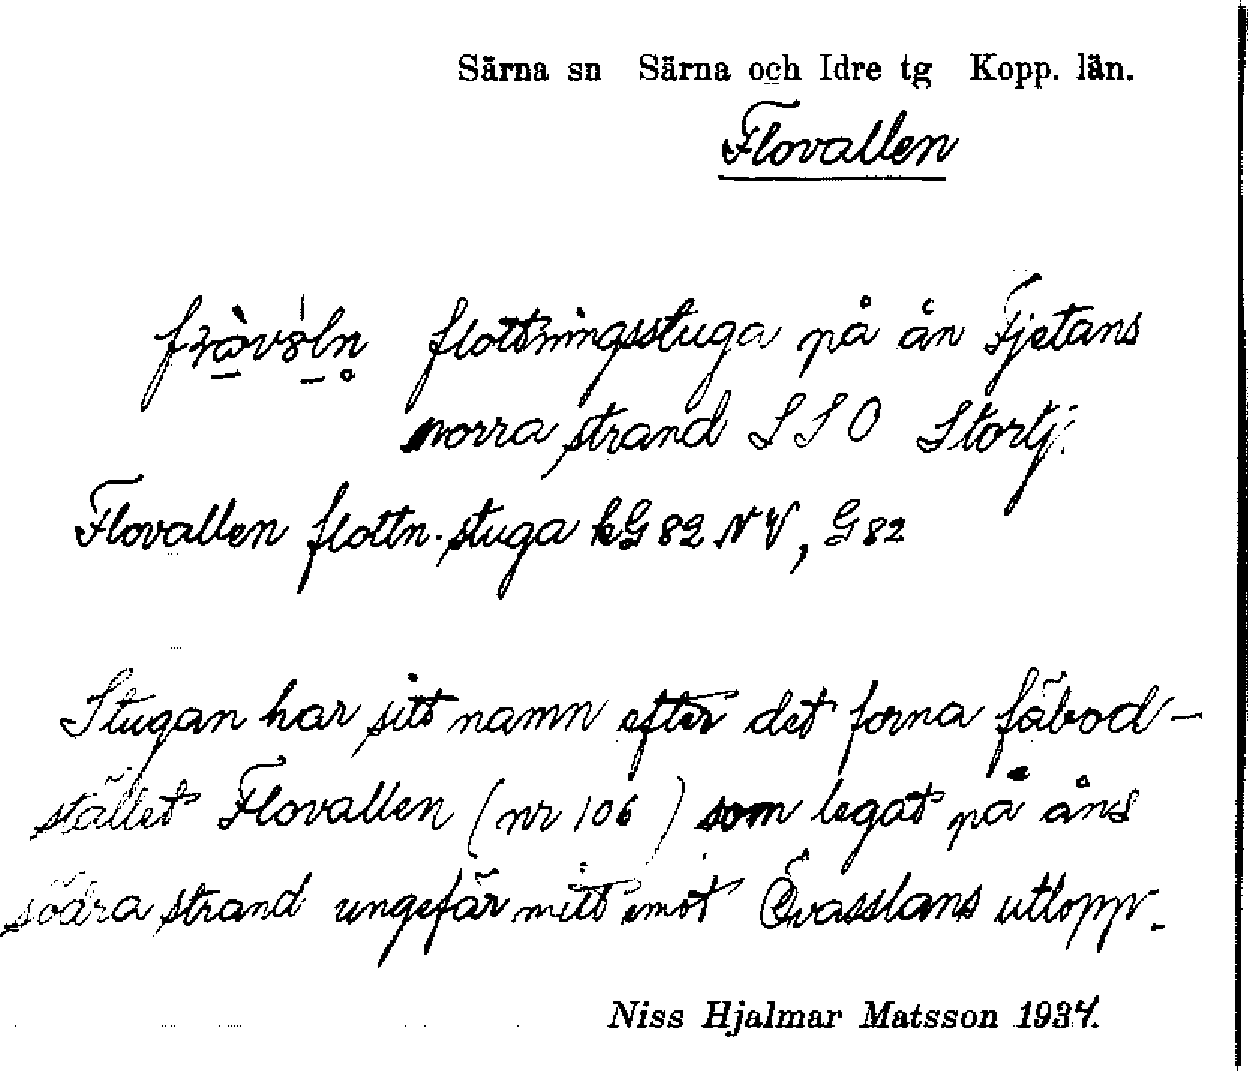 Särna sn Särna och Idre tg Kopp. län.
Flovallen
flottningsstuga på ån Fjetans
norra strand SSO Stortj.
Flovallen flottn. stuga kG 82 NV, G 82
Stugan har sitt namn efter det forna fäbod-
stället Flovallen (nr 106) som legat på åns
södra strand ungefär mitt emot utlopp.
Niss Hjalmar Matsson 1934.